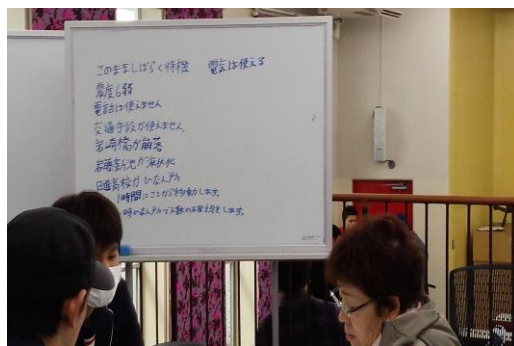 このまましばらく待機 電気は使える
震度6弱
電話は使えません
交通手段が使えません。
岩崎橋が崩落
が液状化
日進高校がひなん所
1時間にここから移動します。
一時ひなん所で人数の確認をします。